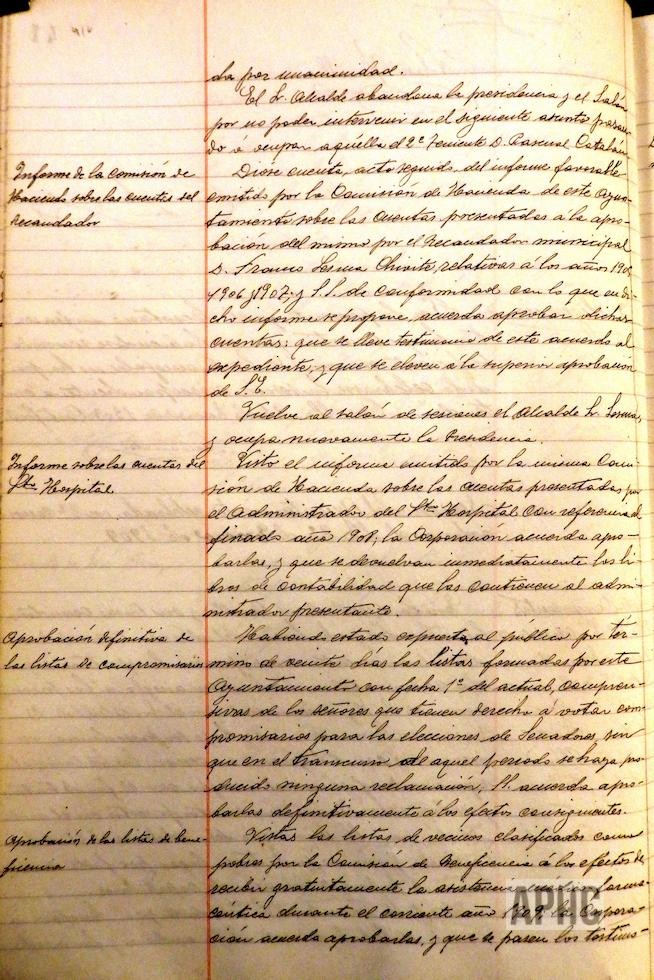 da por unanimidad.
El Sr. Alcalde abandona la presidencia y el Salón
por no poder intervenir en el siguiente asunto pasan-
do a ocupar aquella el 2º Teniente D. Pascual Catalán.
Informe de la comisión de
Hacienda sobre las cuentas del
Recaudador
Diose cuenta, acto seguido, del informe favorable
emitido por la Comisión de Hacienda de este Ayun-
tamiento sobre las cuentas presentadas a la apro-
bación del mismo por el Recaudador municipal
D. Franco Lesma Chivite, relativas á los años
1906 y 1907; y de conformidad con lo que en di-
cho informe se propone, acuerda aprobar dichas
cuentas: que se lleve testimonio de este acuerdo al
expediente, y que se eleven á la superior aprobación
de S.E.
Vuelve al salón de sesiones el Alcalde Sr. Lesma,
y ocupa nuevamente la Presidencia.
Informe sobre las cuentas del
Sto Hospital
Visto el informe emitido por la misma Comi-
sión de Hacienda sobre las cuentas presentadas por
el Administrador del Sto Hospital con referencia al
finado año 1908, la Corporación acuerda apro-
barlas, y que se devuelvan inmediatamente los li-
bros de contabilidad que las contienen al admi-
nistrador presentante.
Aprobación definitiva de
las listas de compromisarios
Habiendo estado expuestas al público por tér-
mino de veinte días las listas formadas por este
Ayuntamiento con fecha 1º del actual, compren-
sivas de los señores que tienen derecho á votar com-
promisarios para las elecciones de Senadores, sin
que en el transcurso de aquel periodo se haya pro-
ducido ninguna reclamación, acuerda apro-
barlas definitivamente á los efectos consiguientes.
Aprobación de las listas de bene-
ficencia
Vistas las listas de vecinos clasificados como
pobres por la Comisión de Beneficencia á los efectos de
recibir gratuitamente la asistencia farma-
céutica durante el corriente año 1909, la Corpora-
ción acuerda aprobarlas, y que se pasen los
APHC